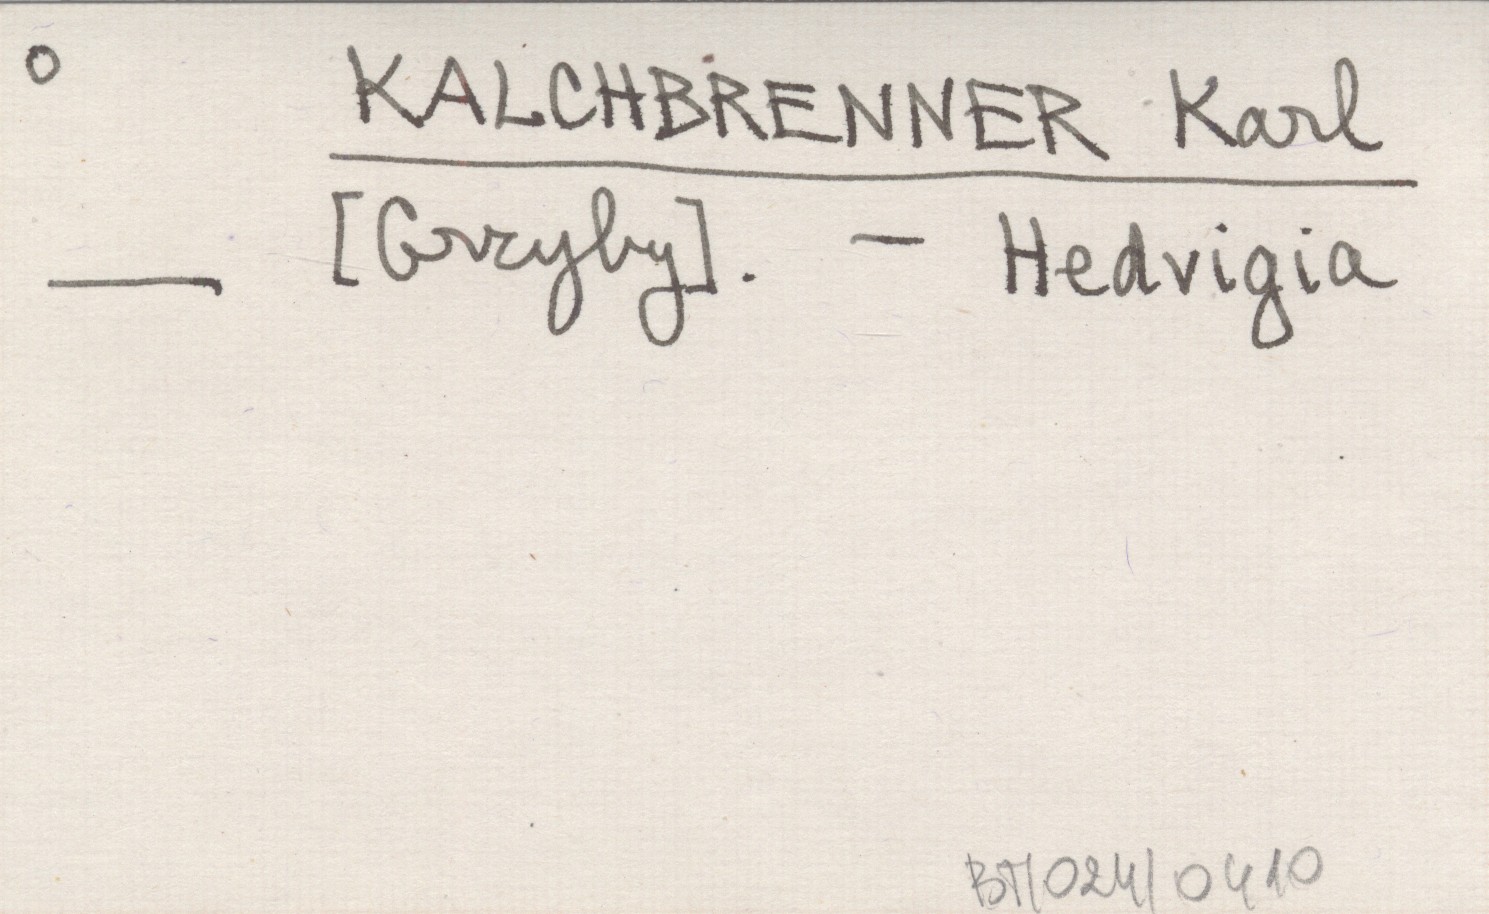 ° KALCHBRENNER Karl
— [Grzyby]. – Hedvigia
BT/024/0410